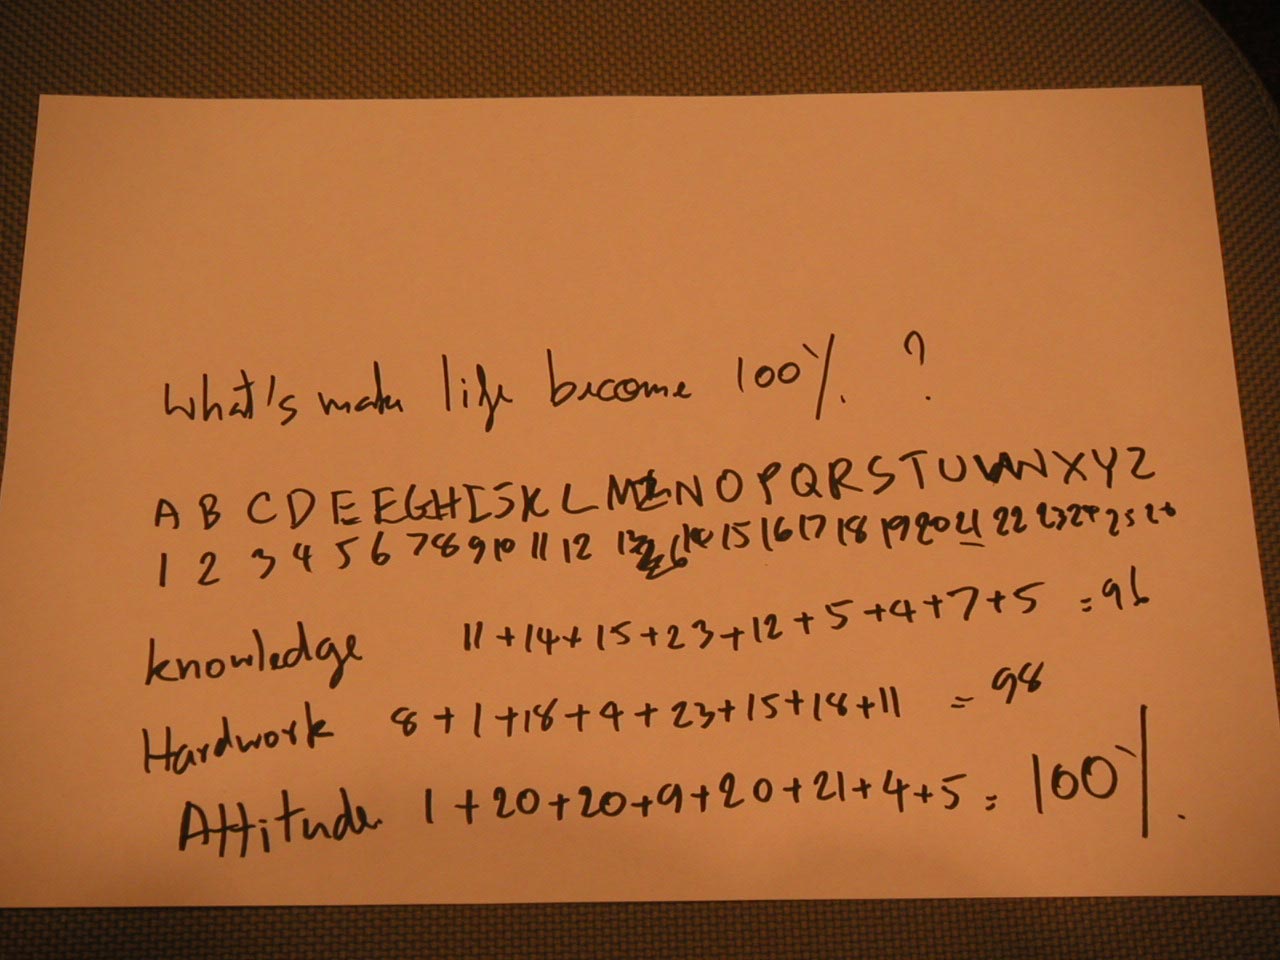 What's make life become 100%. ?
A B C D E E G H I J K L M N O P Q R S T U V W X Y Z
1 2 3 4 5 6 7 8 9 10 11 12 13 14 15 16 17 18 19 20 21 22 23 24 25 26
knowledge 11+14+15+23+12+5+4+7+5 = 96
Hardwork 8+1+18+4+23+15+18+11 = 98
Attitude 1+20+20+9+20+21+4+5 = 100%.